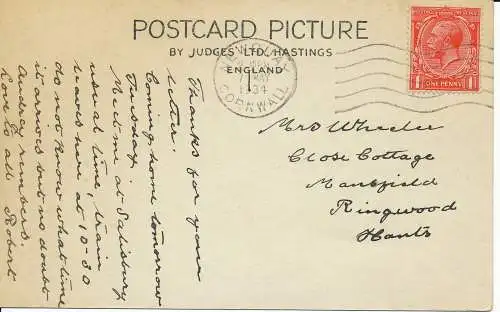 POSTCARD PICTURE
BY JUDGES' LTD, HASTINGS
ENGLAND
CORNWALL
1934
ONE PENNY
Thanks for your
letter.
Coming home tomorrow
Tuesday.
Meet me at Salisbury
usual time, train
leaves here at 10-30
do not know what time
it arrives but no doubt
Andred rembers.
Love to all Robert
Mrs Wheeler
Close Cottage
Ringwood
Hants